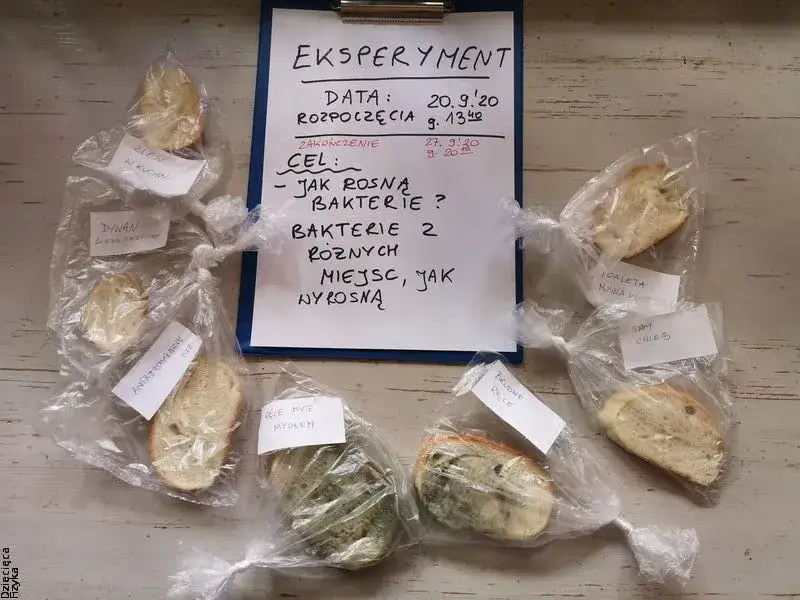 EKSPERYMENT
DATA: 20.9.'20
ROZPOCZĘCIA g. 13⁴⁰
ZAKOŃCZENIE 27.9.'20
g. 20¹⁰
CEL:
- JAK ROSNĄ
BAKTERIE?
BAKTERIE Z
RÓŻNYCH
MIEJSC, JAK
WYROSNĄ
ZLEW
W KUCHNI
DYWAN
TOALETA
MUSZLA
SAM
CHLEB
RĘCE MYTE
MYDŁEM
BRUDNE
RĘCE
Dziecięca
Fizyka